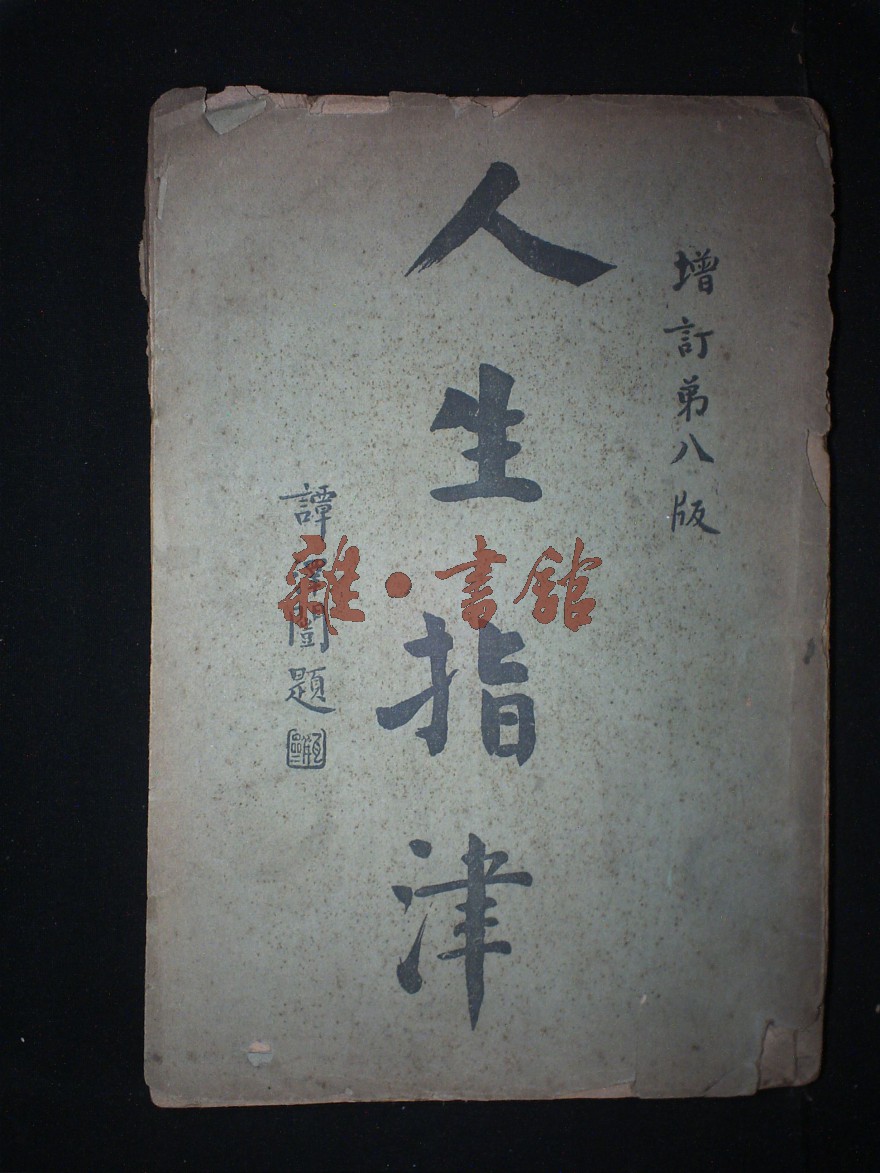 增訂第八版
人生指津
譚澤闓題
雜·書館